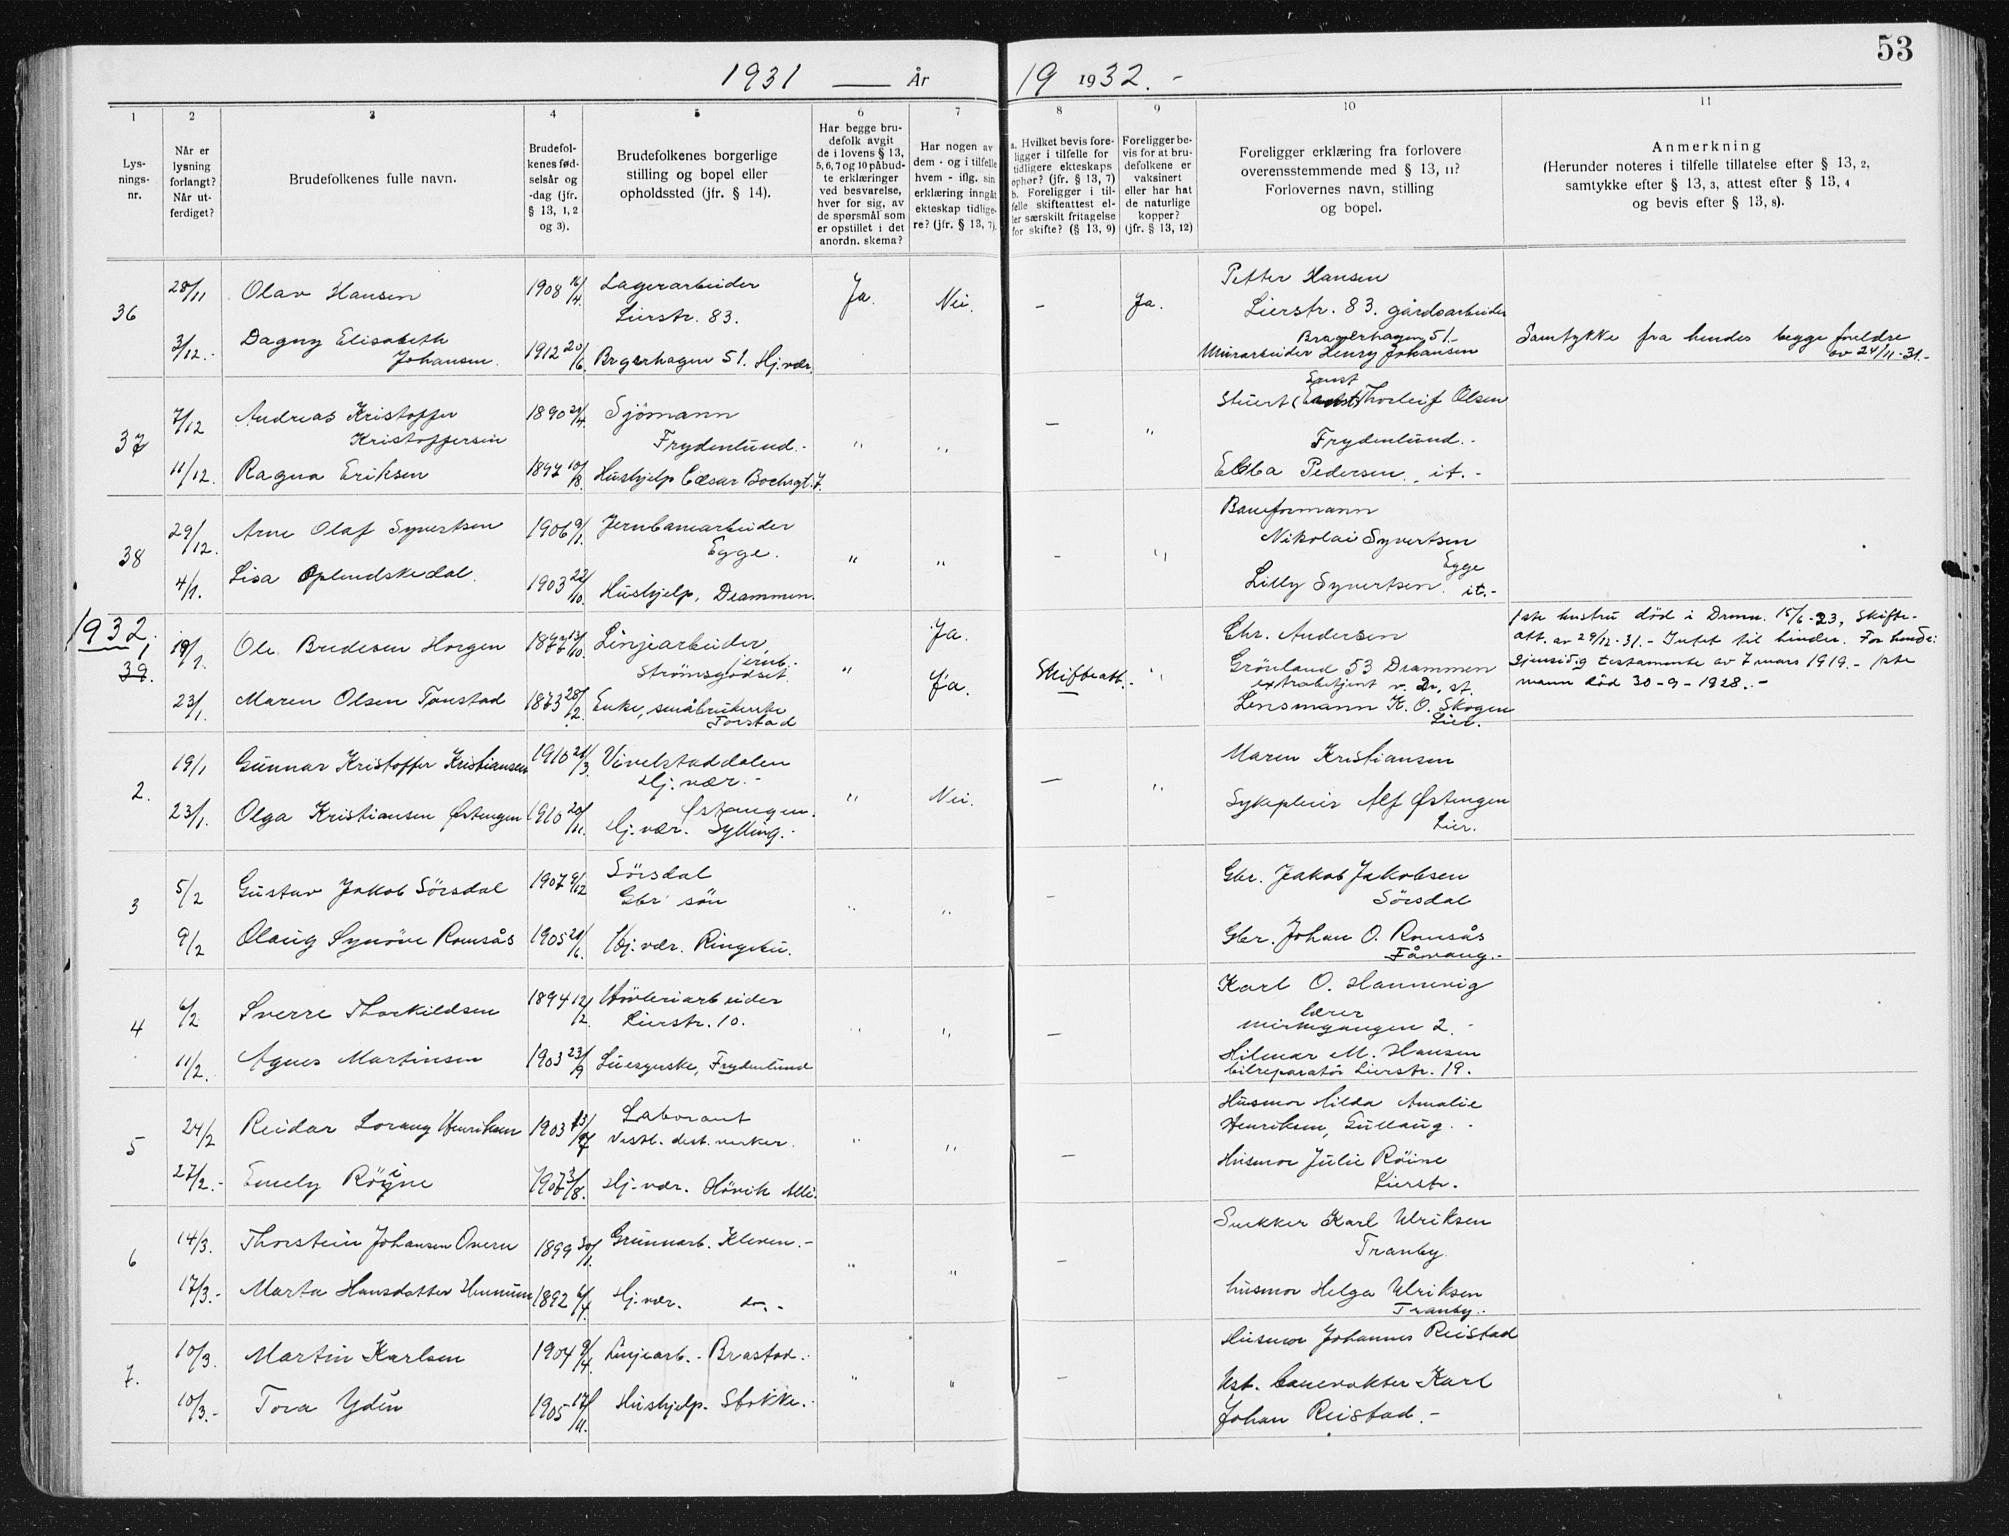 53
1931 — År 19 1932.-
1 2 3 4 5 6 7 8 9 10 11
Lysningsnr.
Når er lysning forlangt? Når utferdiget?
Brudefolkenes fulle navn.
Brudefolkenes fødselsår og -dag (jfr. § 13, 1, 2 og 3).
Brudefolkenes borgerlige stilling og bopel eller opholdssted (jfr. § 14).
Har begge brudefolk avgit de i lovens § 13, 5, 6, 7 og 10 påbudte erklæringer ved besvarelse, hver for sig, av de spørsmål som er opstillet i det anordn. skema?
Har nogen av dem - og i tilfelle hvem - iflg. sin erklæring inngåt ekteskap tidligere? (jfr. § 13, 7).
a. Hvilket bevis foreligger i tilfelle for tidligere ekteskaps ophør? (jfr. § 13, 7) b. Foreligger i tilfelle skifteattest eller særskilt fritagelse for skifte? (§ 13, 9)
Foreligger bevis for at brudefolkene er vaksinert eller har hat de naturlige kopper? (jfr. § 13, 12)
Foreligger erklæring fra forlovere overensstemmende med § 13, 11? Forlovernes navn, stilling og bopel.
Anmerkning (Herunder noteres i tilfelle tillatelse efter § 13, 2, samtykke efter § 13, 3, attest efter § 13, 4 og bevis efter § 13, 8).
36 28/11 Olav Hansen 1908 16/4 Lagerarbeider Lierstr. 83. Ja. Nei. - Ja. Petter Hansen Lierstr. 83. gårdsarbeider
3/12.- Dagny Elisabeth Johansen 1912 20/6 Bragerhagen 51. Hj.vær. Bragerhagen 51.- Murarbeider Henry Johansen Samtykke fra hendes begge foreldre av 24/11-31.-
37 7/12 Andreas Kristoffer Kristoffersen 1890 21/4 Sjömann Frydenlund.- " " - " Stuert Ernst Thorleif Olsen Frydenlund.-
11/12. Ragna Eriksen 1897 10/8 Hushjelp Cæsar Boehsgt. 7. Ebba Pedersen, it.-
38 29/12. Arne Olaf Syvertsen 1906 9/1 Jernbanearbeider Egge. " " - " Baneformann Nikolai Syvertsen Egge
4/1. Lisa Oplendskedal. 1903 22/10 Hushjelp, Drammen. Lilly Syvertsen. it.-
1932.
39. 1 19/1. Ole Bredesen Horgen 1877 13/10 Linjearbeider, jernb. Strømsgodset. " Ja. Skifteatt.- " Chr. Andersen Grönland 53 Drammen extrabetjent v. Dr. st. 1ste hustru död i Drmn. 15/6-23, Skifteatt. av 29/12-31.- Intet til hinder. For hende: gjensidig testamente av 7 mars 1919.- 1ste mann död 30-9-1928.-
23/1. Maren Olsen Tonstad 1873 28/12. Enke, småbrukerske Torstad Ja. Lensmann K. O. Skogen Lier.
2. 19/1 Gunnar Kristoffer Kristiansen 1910 21/3. Vivelstaddalen Hj. vær.- " Nei. - " Maren Kristiansen
23/1. Olga Kristiansen Østengen 1910 20/11. Østengen. Hj. vær. Sylling.- Sykepleier Alf Østengen Lier.
3 5/2 Gustav Jakob Sörsdal 1907 9/12 Sörsdal Gbr. sön " " - Gbr. Jakob Jakobsen Sörsdal
9/2 Olaug Synöve Romsås 1905 21/6. Hj. vær. Ringebu. Gbr. Johan O. Romsås Fåvang.-
4 6/2 Sverre Thorkildsen 1894 12/2. Hövleriarbeider Lierstr. 10. " " - Karl O. Hannevig lærer 2.-
11/2. Agnes Martinsen 1903 23/9 Luesyerske, Frydenlund Hilmar M. Hansen bilreparatör Lierstr. 19.
5 24/2 Reidar Lorang Henriksen 1903 Laborant Vestl. dest. verker. " " - Husmor Hilda Amalie Henriksen, Gullaug.-
27/2.- Emely Röine 1907 3/8. Hj. vær. Hövik Alle. Husmor Julie Röine Lierstr.
6 14/3. Thorstein Johansen Overn 1899 30/1. Grunnarb. Kleven.- " " - Snekker Karl Ulriksen Tranby.
17/3.- Marta Hansdatter Hennum 1892 Hj. vær. do.- husmor Helga Ulriksen Tranby.-
7. 10/3. Martin Karlsen 1904 9/4. Linjearb.- Brastad.- " " - Husmor Johannes Reistad
10/3.- Tora Ydin 1905 17/11. Hushjelp. Stokke.- Johan Reistad.- Karl